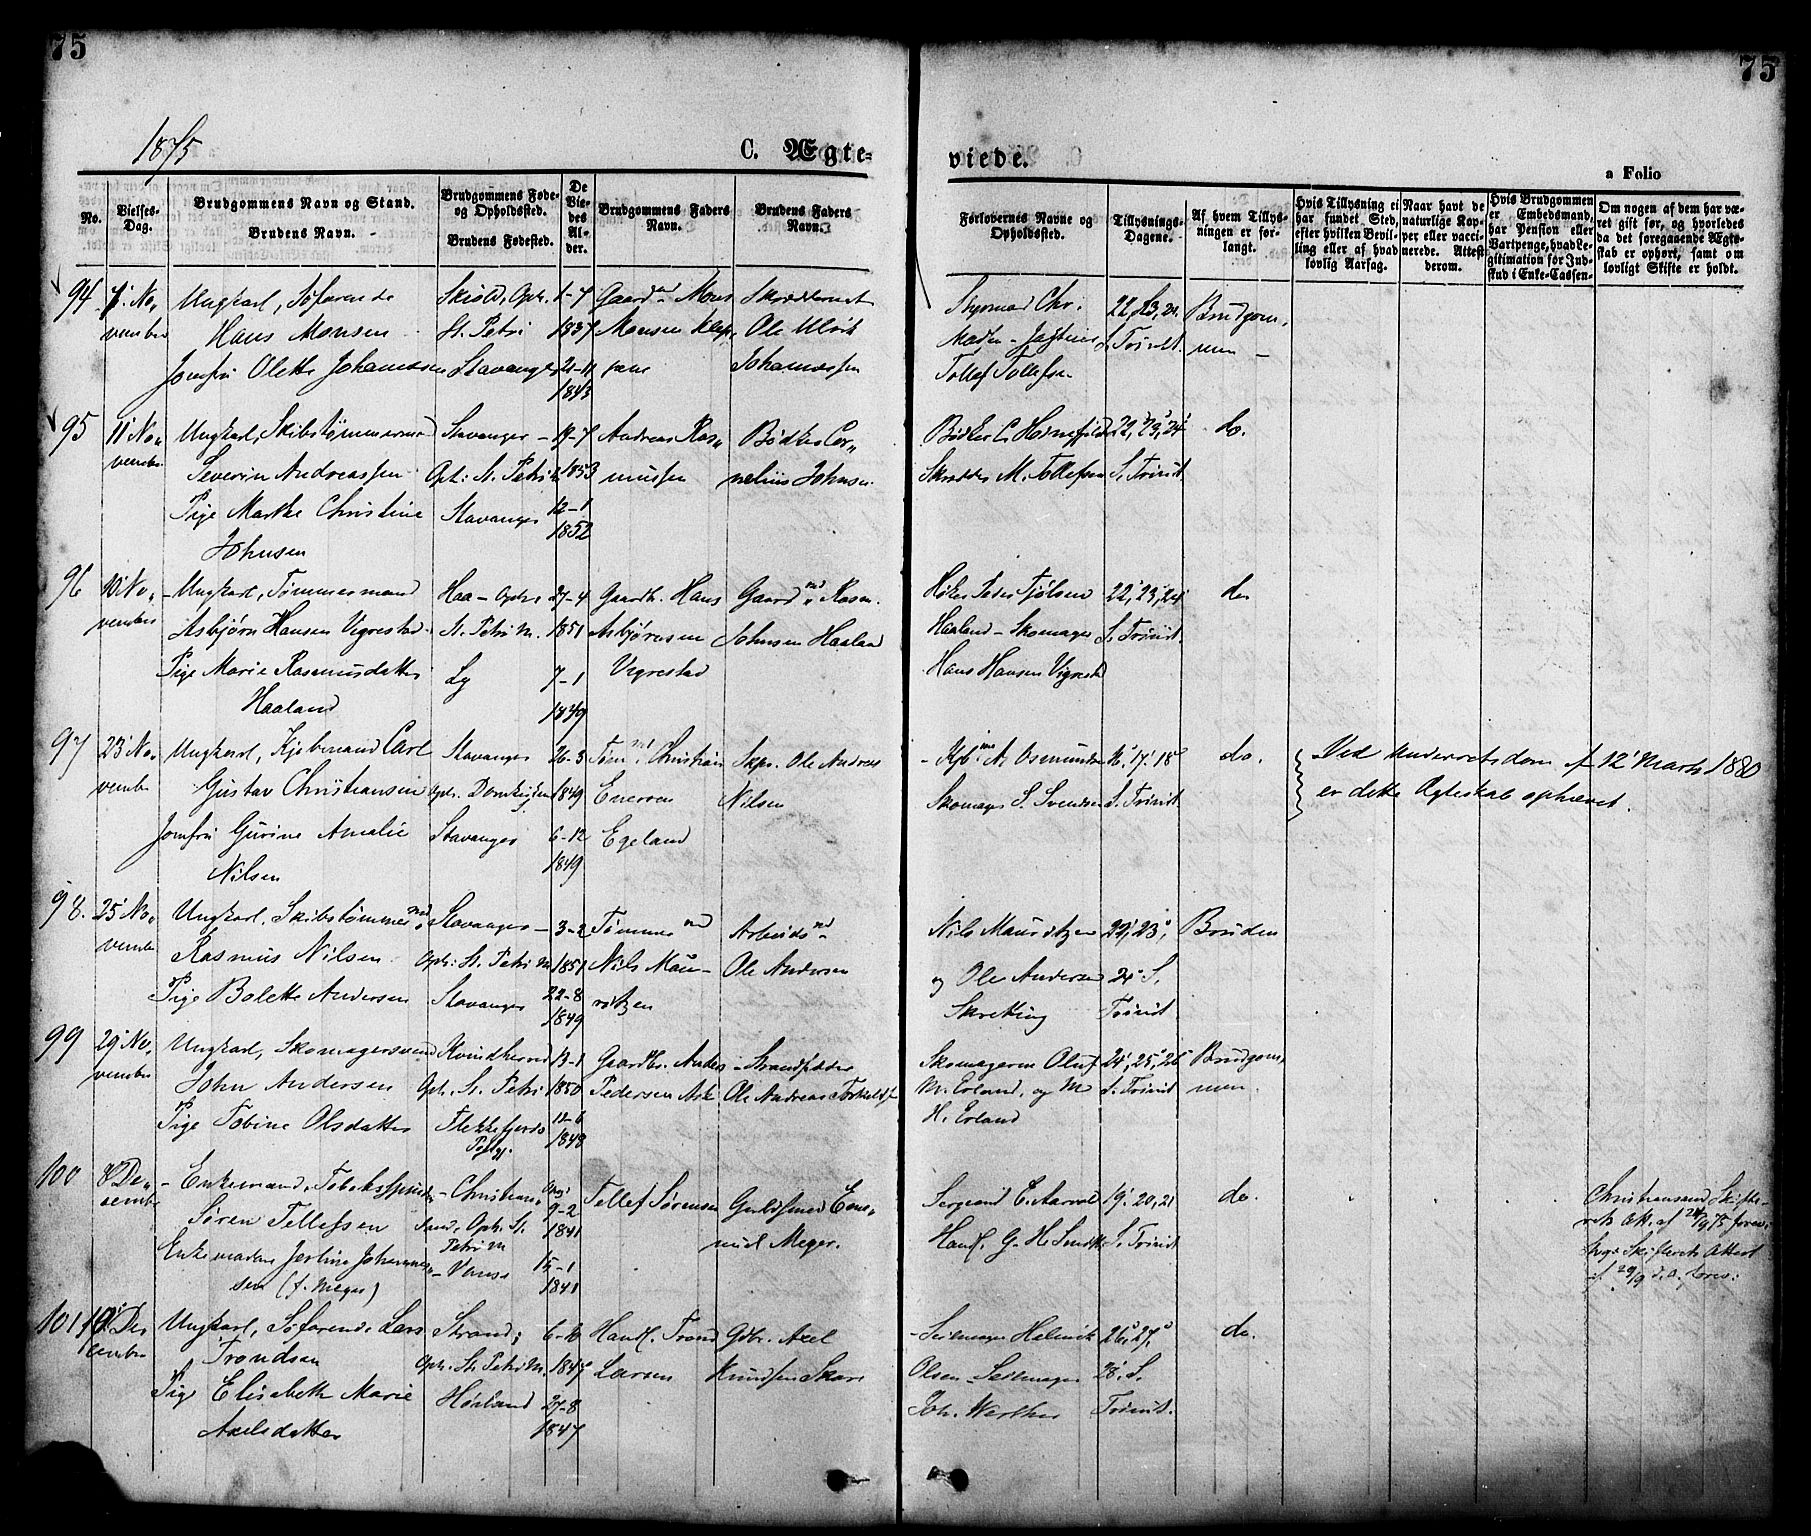 75
75
1875
C. Ægte-
viede.
a Folio
No.
Vielses-
Dag.
Brudgommens Navn og Stand.
Brudens Navn.
Brudgommens Føde-
og Opholdssted.
Brudens Fødested.
De
Vie-
des
Al-
der.
Brudgommens Faders
Navn.
Brudens Faders
Navn.
Forlovernes Navne og
Opholdssted.
Tillysnings-
Dagene.
Af hvem Tillys-
ningen er for-
langt.
Hvis Tillysning ei
har fundet Sted,
efter hvilken Bevil-
ling eller af hvad
lovlig Aarsag.
Naar havt de
naturlige Kop-
per eller vacci-
nerede. Attest
derom.
Hvis Brudgommen
er Embedsmand,
har Pension eller
Vartpenge, hvad Le-
gitimation for Ind-
skud i Enke-Cassen.
Om nogen af dem har væ-
ret gift før, og hvorledes
da det foregaaende Ægte-
skab er ophørt, samt om
lovligt Skifte er holdt.
94 No-
vember
Ungkarl, Søfarende
Hans Monsen
Jomfru Olette Johannessen
Skiold, Oph.
St. Petri
Stavanger
1837
21-11
1843
Gaardmd Mons
Monsen
Ole Ulrik
Johannessen
Styrmand Chr.
Tollef Tollefsen
22, 23, 24
S. Trinit.
Brudgom-
men
95
11' No-
vember
Ungkarl, Skibstømmermd
Severin Andreassen
Pige Marthe Christine
Johnsen
Stavanger
Oph: St. Petri
Stavanger
19-7
1853
12-1
1852
Andreas Ras-
mussen
Bødker Cor-
nelius Johnsen
Bødker C. Hornefjeld
Skrædder M. Tollefsen
22, 23, 24
S. Trinit.
do.
96
10' No-
vember
Ungkarl, Tømmermand
Asbjørn Hansen Vigrestad
Pige Marie Rasmusdatter
Haaland
Haa - Oph:
St. Petri M.
Ly
27-4
1851
7-1
1849
Gaardb. Hans
Asbjørnsen
Vigrestad
Gaardmd Rasm.
Johnsen Haaland
Høker Peder Tjølsen
Haaland - Skomager
Hans Hansen Vigrestad
22, 23, 24
S. Trinit.
do
97
23' No-
vember
Ungkarl, Kjøbmand Carl
Gustav Christiansen
Jomfru Gurine Amalie
Nilsen
Stavanger
Oph. Domkirken
Stavanger
26-3
1849
6-12
1849
Tømmd. Christian
Enevon
Egeland
Skpr. Ole Andreas
Nilsen
Kjbmd A. Osmundsen
Skomager S. Svendsen
16, 17, 18
S. Trinit.
do.
Ved Underretsdom af 12' Marts 1880
er dette Ægteskab ophævet.
98.
25' No-
vember
Ungkarl, Skibstømmermd
Rasmus Nilsen
Pige Bolette Andersen
Stavanger
Oph: St. Petri M.
Stavanger
3-2
1851
22-8
1849
Tømmermd
Nils Mau-
ritzen
Arbeidsmd
Ole Andersen
Nils Mauritzen
og Ole Andersen
Skretting
22, 23,
24 S.
Trinit.
Bruden
99
29' No-
vember
Ungkarl, Skomagersvend
John Andersen
Pige Tobine Olsdatter
Kvindherred
Oph. St. Petri
Flekkefjords
Præstgj.
13-1
1850
12-6
1848
Gaardbr. Anders
Pedersen Ask
Strandsidder
Ole Andreas Torkeldsen
Skomagerne Oluf
M. Erland, og M.
H. Erland
24, 25, 26
S. Trinit.
Brudgom-
men.
100
8' De-
cember
Enkemand, Tobaksspinder
Søren Tellefsen
Enkemadam Josline Johannes-
sen (f. Meyer)
Christian-
sand, Oph. St.
Petri M
Vanse
9-2
1841
15-1
1841
Tellef Sørensen
Guldsmed Ema-
nuel Meyer.
Sergeand E. Aarvold
Handl. G. H. Smith
19, 20, 21
S. Trinit.
do.
Christianssand Skifte-
rets Att. af 24/9 75 forev.
Skifterets Attest
af 29/9 d. A. forev:
101
10' De-
cember
Ungkarl, Søfarende Lars
Trondsen
Pige Elisabeth Marie
Axelsdatter
Strand;
Oph. St. Petri M.
Høiland
6-10
1847
27-8
1847
Handl. Trond
Larsen
Gdbr. Axel
Knudsen Skare
Seilmager Halvrik
Olsen - Seilmager
Joh. Werther
26, 27,
28, S.
Trinit.
do.